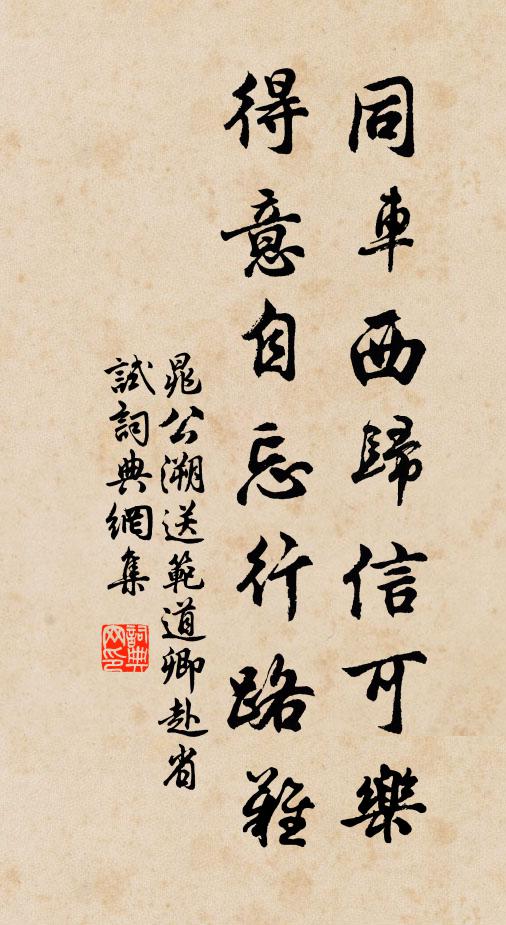 同車西歸信可樂
得意自忘行路難
晁公溯送範道卿赴省
試詞典網集
詞典
网印